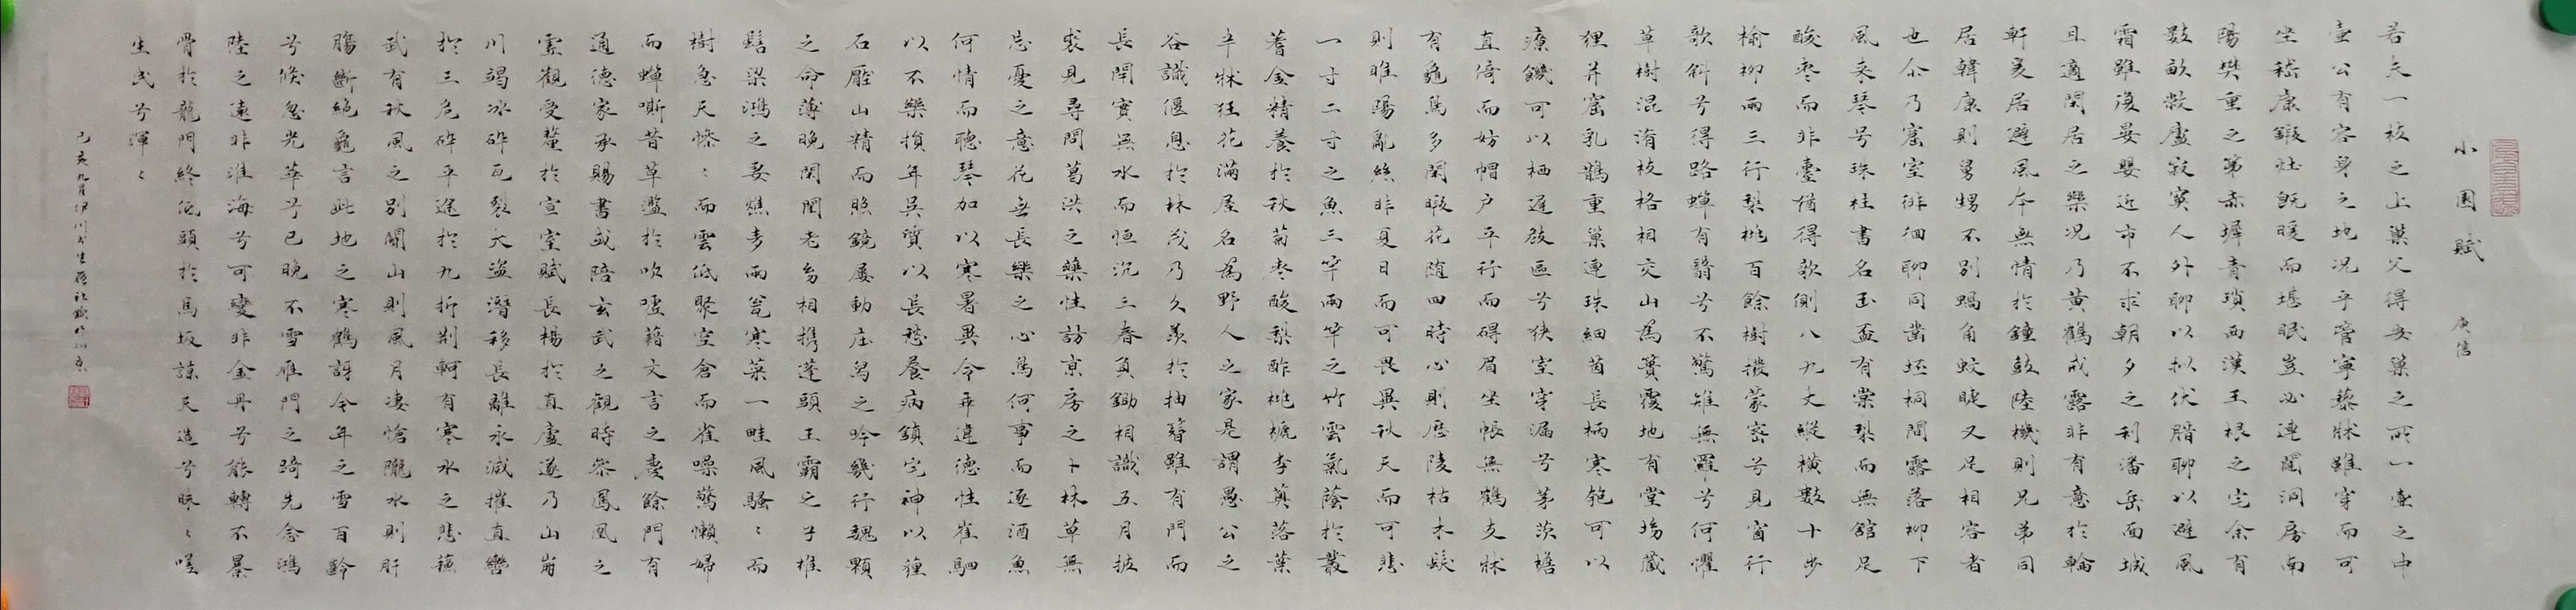 小園賦 庾信
若夫一枝之上巢父得安巢之所一壺之中
壺公有容身之地况乎管寧藜牀雖穿而可
坐嵇康鍛灶既暖而堪眠豈必連闥洞房南
陽樊重之第赤墀青瑣西漢王根之宅余有
數畝敝廬寂寞人外聊以拟伏腊聊以避風
霜雖復晏嬰近市不求朝夕之利潘岳面城
且適閑居之樂况乃黄鶴戒露非有意於輪
軒爰居避風本無情於鐘鼓陸機則兄弟同
居韓康則舅甥不別蝸角蚊睫又足相容者
也尒乃窟室徘徊聊同凿坯桐間露落柳下
風来琴号珠柱書名玉盃有棠梨而無館足
酸枣而非臺猶得欹側八九丈縱橫數十步
榆柳兩三行梨桃百餘樹撥蒙密兮見窗行
欹斜兮得路蟬有翳兮不驚雉無羅兮何懼
草樹混淆枝格相交山為簣覆地有堂坳藏
狸并窟乳鵲重巢連珠細茵長柄寒匏可以
療饑可以栖遲區兮狹室穿漏兮茅茨檐
直倚而妨帽户平行而碍眉坐帳無鶴支牀
有龜鳥多閑暇花随四時心則歷陵枯木髮
則睢陽亂絲非夏日而可畏異秋天而可悲
一寸二寸之魚三竿兩竿之竹雲氣蔭於叢
蓍金精養於秋菊枣酸梨酢桃榹李薁落葉
半牀狂花滿屋名為野人之家是謂愚公之
谷識偃息於林茂乃久羡於抽簪雖有門而
長閉實無水而恒沉三春負鋤相識五月披
裘見尋問葛洪之藥性訪京房之卜林草無
忘憂之意花無長樂之心鳥何事而逐酒魚
何情而聽琴加以寒暑異令乖違德性崔駰
以不樂損年吳質以長愁養病鎮宅神以薶
石厭山精而照鏡屡動庄舄之吟幾行魏顆
之命薄晚閑閨老幼相携蓬頭王霸之子椎
髻梁鴻之妻燋麥兩瓮寒菜一畦風騷〻而
樹急天惨〻而雲低聚空倉而雀噪驚懶婦
而蟬嘶昔草濫於吹嘘藉文言之慶餘門有
通德家承賜書或陪玄武之觀時參鳳凰之
墟觀受釐於宣室賦長楊於直廬遂乃山崩
川竭冰碎瓦裂大盗潜移長離永滅摧直轡
於三危碎平途於九折荊軻有寒水之悲蘇
武有秋風之別關山則風月凄愴隴水則肝
腸斷絶龜言此地之寒鶴訝今年之雪百齡
兮倏忽光華兮已晚不雪雁門之踦先念鴻
陸之遠非淮海兮可變非金丹兮能轉不暴
骨於龍門終低頭於馬坂諒天造兮昧〻嗟
生民兮渾〻
己亥九月伊川